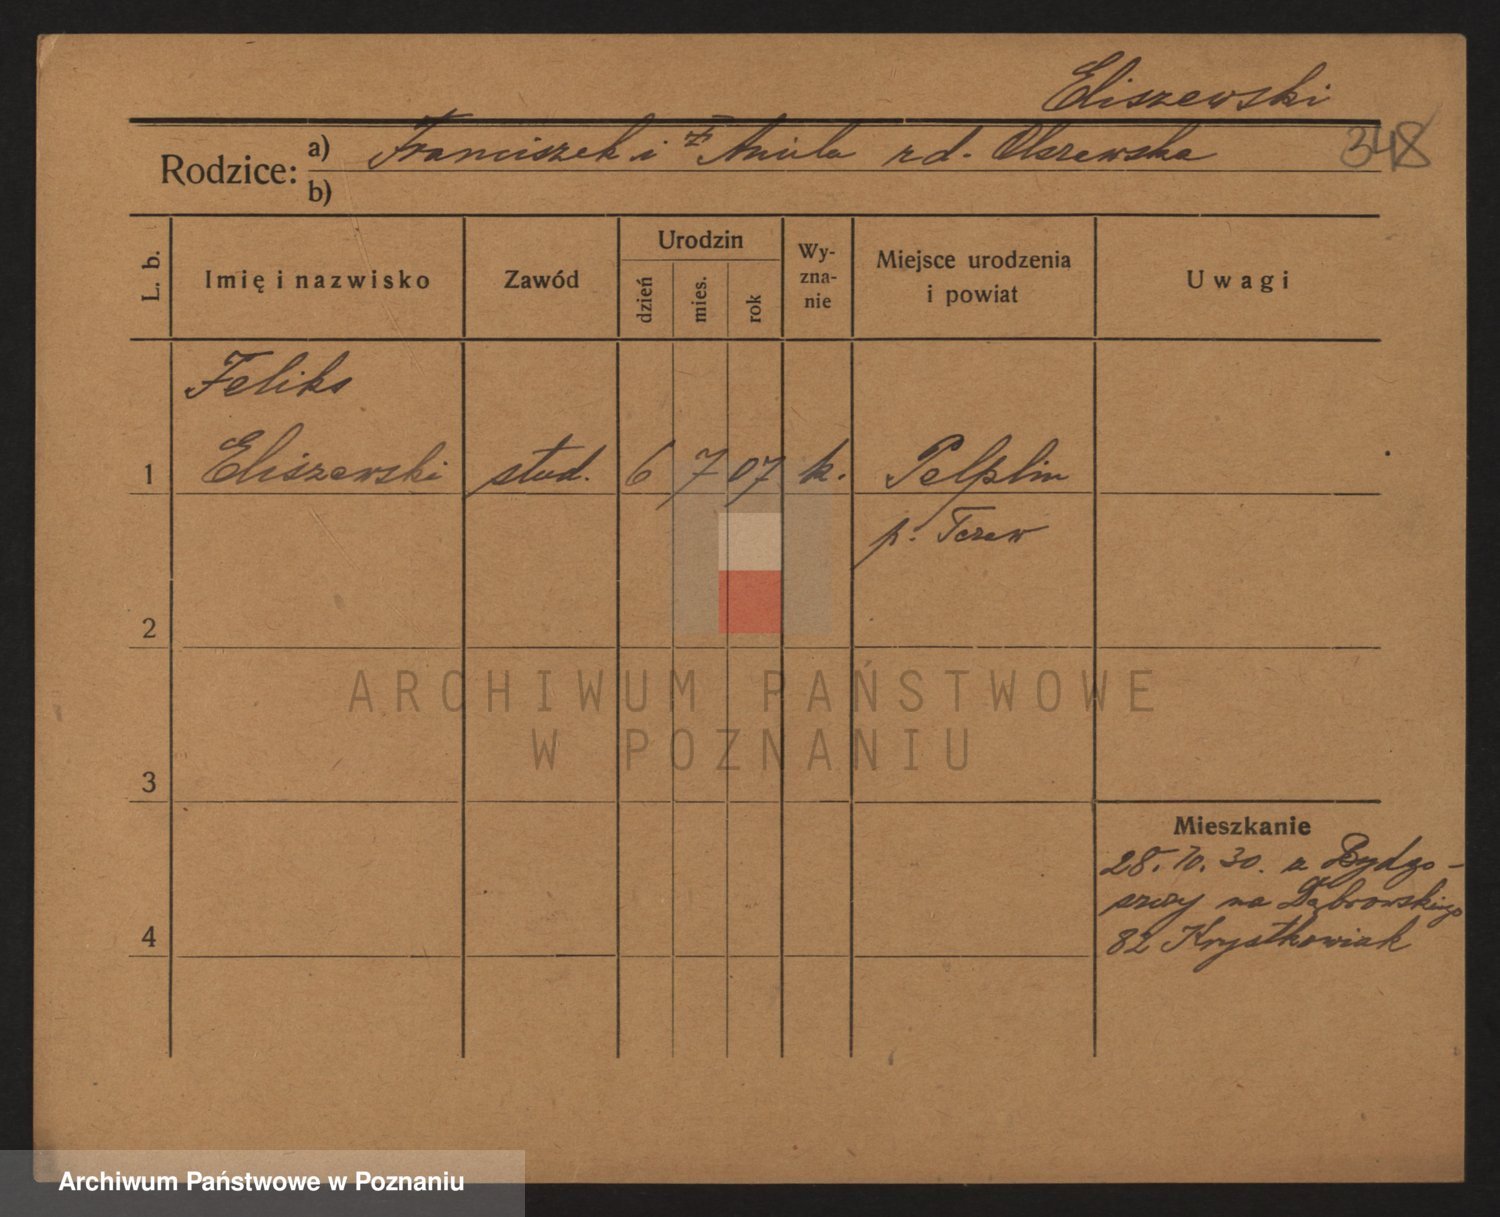 Eliszewski
Rodzice: a) Franciszek i Aniela rd. Olszewska
348
b)
L. b.
Imię i nazwisko
Zawód
Urodzin
dzień
mies.
rok
Wy-
zna-
nie
Miejsce urodzenia
i powiat
Uwagi
Feliks
1 Eliszewski stud. 6 7 07 k. Pelplin
p. Tczew
2
ARCHIWUM PAŃSTWOWE
W POZNANIU
3
Mieszkanie
28. 10. 30. z Bydgo-
szczy na Dąbrowskiego
82 Krystkowiak
4
Archiwum Państwowe w Poznaniu